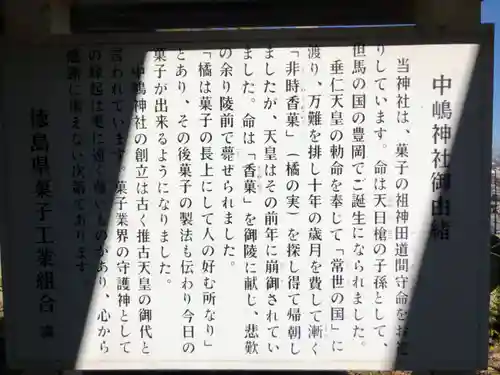 中嶋神社御由緒
当神社は、菓子の祖神田道間守命をお祀
りしています。命は天日槍の子孫として、
但馬の国の豊岡でご誕生になられました。
垂仁天皇の勅命を奉じて「常世の国」に
渡り、万難を排し十年の歳月を費して漸く
「非時香菓」（橘の実）を探し得て帰朝し
ましたが、天皇はその前年に崩御されてい
ました。命は「香菓」を御陵に献じ、悲歎
の余り陵前で薨ぜられました。
「橘は菓子の長上にして人の好む所なり」
とあり、その後菓子の製法も伝わり今日の
菓子が出来るようになりました。
中嶋神社の創立は古く推古天皇の御代と
言われています。菓子業界の守護神として
の縁起は更に遠く尊いものがあり、心から
感謝に堪えない次第であります
徳島県菓子工業組合